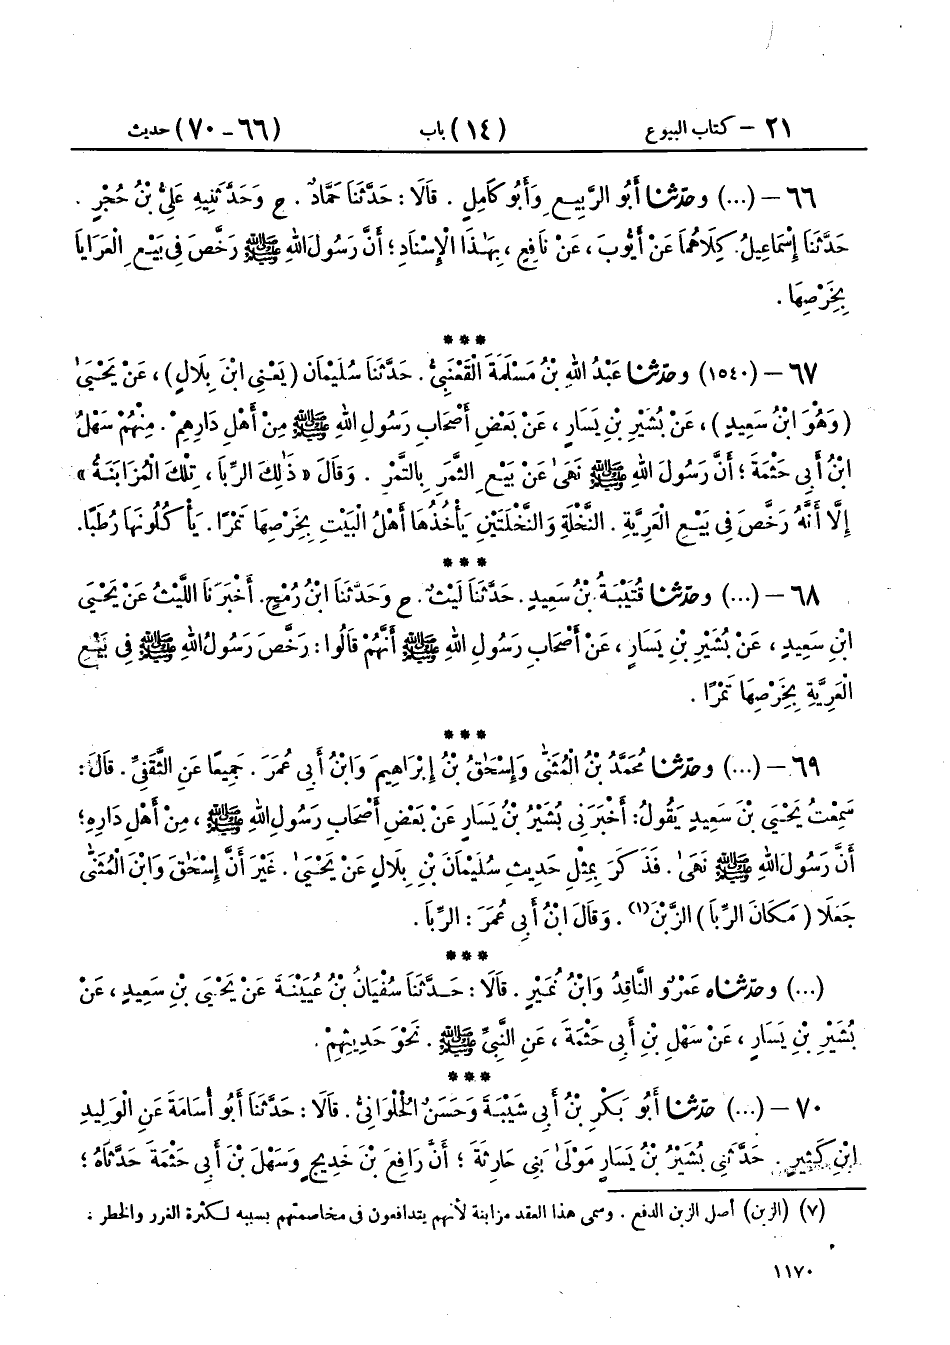 ٢١ – كتاب البيوع (١٤) باب (٦٦ – ٧٠) حديث
٦٦ – (...) وحَدَّثَنَا أَبُو الرَّبِيعِ وَأَبُو كَامِلٍ . قَالَا : حَدَّثَنَا حَمَّادٌ . ح وَحَدَّثَنِيهِ عَلِيُّ بْنُ حُجْرٍ .
حَدَّثَنَا إِسْمَاعِيلُ. كِلَاهُمَا عَنْ أَيُّوبَ ، عَنْ نَافِعٍ ، بِهٰذَا الْإِسْنَادِ ؛ أَنَّ رَسُولَ اللهِ ﷺ رَخَّصَ فِى بَيْعِ الْعَرَايَا
بِخَرْصِهَا .
***
٦٧ – (١٥٤٠) وحَدَّثَنَا عَبْدُ اللهِ بْنُ مَسْلَمَةَ الْقَعْنَبِىُّ . حَدَّثَنَا سُلَيْمَانُ (يَعْنِى ابْنَ بِلَالٍ) ، عَنْ يَحْيَىٰ
(وَهُوَ ابْنُ سَعِيدٍ) ، عَنْ بُشَيْرِ بْنِ يَسَارٍ ، عَنْ بَعْضِ أَصْحَابِ رَسُولِ اللهِ ﷺ مِنْ أَهْلِ دَارِهِمْ . مِنْهُمْ سَهْلُ
ابْنُ أَبِى حَثْمَةَ ؛ أَنَّ رَسُولَ اللهِ ﷺ نَهَىٰ عَنْ بَيْعِ الثَّمَرِ بِالتَّمْرِ . وَقَالَ « ذَٰلِكَ الرِّبَا ، تِلْكَ الْمُزَابَنَةُ »
إِلَّا أَنَّهُ رَخَّصَ فِى بَيْعِ الْعَرِيَّةِ . النَّخْلَةِ وَالنَّخْلَتَيْنِ يَأْخُذُهَا أَهْلُ الْبَيْتِ بِخَرْصِهَا تَمْرًا . يَأْكُلُونَهَا رُطَبًا.
***
٦٨ – (...) وحَدَّثَنَا قُتَيْبَةُ بْنُ سَعِيدٍ . حَدَّثَنَا لَيْثٌ . ح وَحَدَّثَنَا ابْنُ رُمْحٍ. أَخْبَرَنَا اللَّيْثُ عَنْ يَحْيَى
ابْنِ سَعِيدٍ ، عَنْ بُشَيْرِ بْنِ يَسَارٍ ، عَنْ أَصْحَابِ رَسُولِ اللهِ ﷺ أَنَّهُمْ قَالُوا : رَخَّصَ رَسُولُ اللهِ ﷺ فِى بَيْعِ
الْعَرِيَّةِ بِخَرْصِهَا تَمْرًا .
***
٦٩ – (...) وحَدَّثَنَا مُحَمَّدُ بْنُ الْمُثَنَّىٰ وَإِسْحَٰقُ بْنُ إِبْرَاهِيمَ وَابْنُ أَبِى عُمَرَ . جَمِيعًا عَنِ الثَّقَفِىِّ . قَالَ :
سَمِعْتُ يَحْيَىٰ بْنَ سَعِيدٍ يَقُولُ : أَخْبَرَنِى بُشَيْرُ بْنُ يَسَارٍ عَنْ بَعْضِ أَصْحَابِ رَسُولِ اللهِ ﷺ ، مِنْ أَهْلِ دَارِهِ ؛
أَنَّ رَسُولَ اللهِ ﷺ نَهَىٰ . فَذَكَرَ بِمِثْلِ حَدِيثِ سُلَيْمَانَ بْنِ بِلَالٍ عَنْ يَحْيَىٰ . غَيْرَ أَنَّ إِسْحَٰقَ وَابْنَ الْمُثَنَّىٰ
جَعَلَا (مَكَانَ الرِّبَا) الزَّبْنَ (١) . وَقَالَ ابْنُ أَبِى عُمَرَ : الرِّبَا .
***
(...) وحَدَّثَنَاه عَمْرٌو النَّاقِدُ وَابْنُ نُمَيْرٍ . قَالَا : حَدَّثَنَا سُفْيَانُ بْنُ عُيَيْنَةَ عَنْ يَحْيَىٰ بْنِ سَعِيدٍ ، عَنْ
بُشَيْرِ بْنِ يَسَارٍ ، عَنْ سَهْلِ بْنِ أَبِى حَثْمَةَ ، عَنِ النَّبِىِّ ﷺ . نَحْوَ حَدِيثِهِمْ .
***
٧٠ – (...) حَدَّثَنَا أَبُو بَكْرِ بْنُ أَبِى شَيْبَةَ وَحَسَنٌ الْحُلْوَانِىُّ . قَالَا : حَدَّثَنَا أَبُو أُسَامَةَ عَنِ الْوَلِيدِ
ابْنِ كَثِيرٍ . حَدَّثَنِى بُشَيْرُ بْنُ يَسَارٍ مَوْلَىٰ بَنِى حَارِثَةَ ؛ أَنَّ رَافِعَ بْنَ خَدِيجٍ وَسَهْلَ بْنَ أَبِى حَثْمَةَ حَدَّثَاهُ ؛
(٧) (الزبن) أصل الزبن الدفع . وسمى هذا العقد مزابنة لأنهم يتدافعون فى مخاصمتهم بسببه لكثرة الغرر والخطر .
١١٧٠